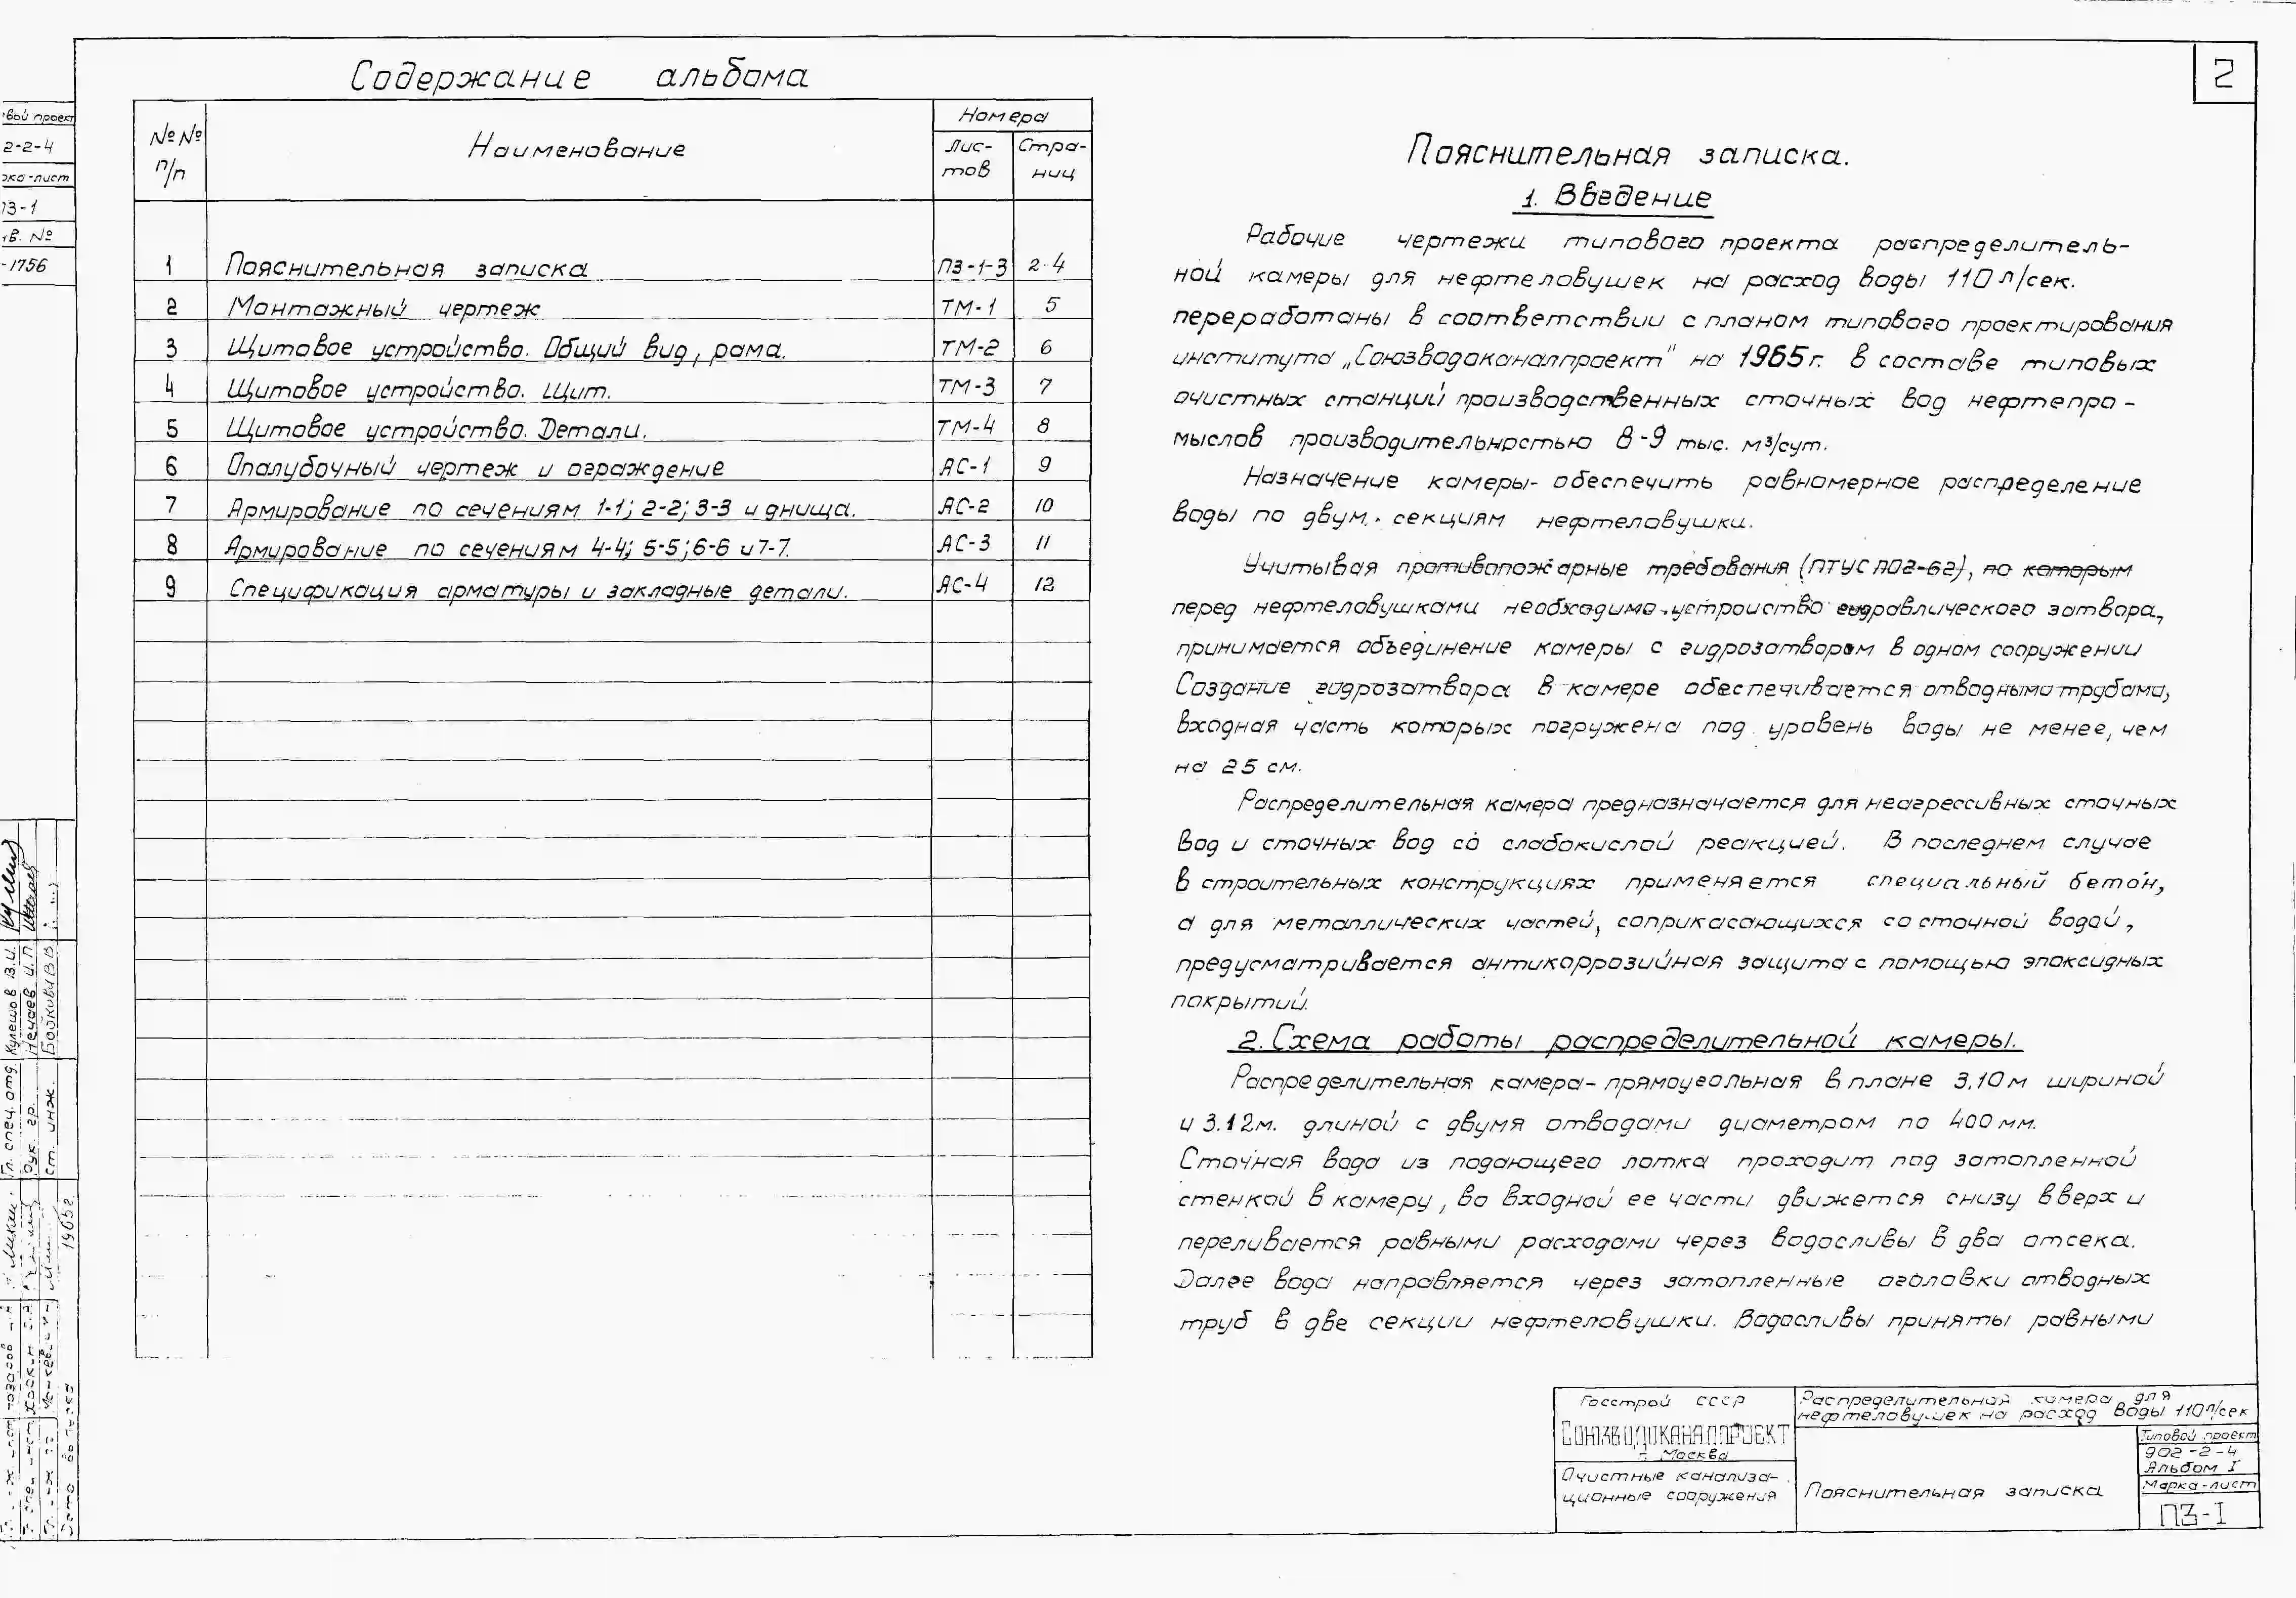 2
Содержание альбома
№№ п/п
Наименование
Номера
Лис-
тов
Стра-
ниц
1 Пояснительная записка ПЗ-1-3 2-4
2 Монтажный чертеж ТМ-1 5
3 Щитовое устройство. Общий вид, рама. ТМ-2 6
4 Щитовое устройство. Щит. ТМ-3 7
5 Щитовое устройство. Детали. ТМ-4 8
6 Опалубочный чертеж и ограждение АС-1 9
7 Армирование по сечениям 1-1; 2-2; 3-3 и днища. АС-2 10
8 Армирование по сечениям 4-4; 5-5; 6-6 и 7-7. АС-3 11
9 Спецификация арматуры и закладные детали. АС-4 12
Пояснительная записка.
1. Введение
Рабочие чертежи типового проекта распределитель-
ной камеры для нефтеловушек на расход воды 110 л/сек.
переработаны в соответствии с планом типового проектирования
института „Союзводоканалпроект" на 1965 г. в составе типовых
очистных станций производственных сточных вод нефтепро-
мыслов производительностью 8-9 тыс. м³/сут.
Назначение камеры- обеспечить равномерное распределение
воды по двум секциям нефтеловушки.
Учитывая противопожарные требования (ПТУСП02-62), по которым
перед нефтеловушками необходимо устройство гидравлического затвора,
принимается объединение камеры с гидрозатвором в одном сооружении
Создание гидрозатвора в камере обеспечивается отводными трубами,
входная часть которых погружена под уровень воды не менее, чем
на 25 см.
Распределительная камера предназначается для неагрессивных сточных
вод и сточных вод со слабокислой реакцией. В последнем случае
в строительных конструкциях применяется специальный бетон,
а для металлических частей, соприкасающихся со сточной водой,
предусматривается антикоррозийная защита с помощью эпоксидных
покрытий.
2. Схема работы распределительной камеры.
Распределительная камера- прямоугольная в плане 3,10 м шириной
и 3.12 м. длиной с двумя отводами диаметром по 400 мм.
Сточная вода из подающего лотка проходит под затопленной
стенкой в камеру, во входной ее части движется снизу вверх и
переливается равными расходами через водосливы в два отсека.
Далее вода направляется через затопленные оголовки отводных
труб в две секции нефтеловушки. Водосливы приняты равными
Госстрой СССР
СОЮЗВОДОКАНАЛПРОЕКТ
г. Москва
Очистные канализа-
ционные сооружения
Распределительная камера для
нефтеловушек на расход воды 110 л/сек
Пояснительная записка
Типовой проект
902-2-4
Альбом I
Марка-лист
ПЗ-I
вой проект
2-2-4
рка-лист
ПЗ-1
нв. №
-1756
Гл. спец. отд. Кулешов В.И.
Рук. гр. Нечаев И.П.
Ст. инж.
1965 г.